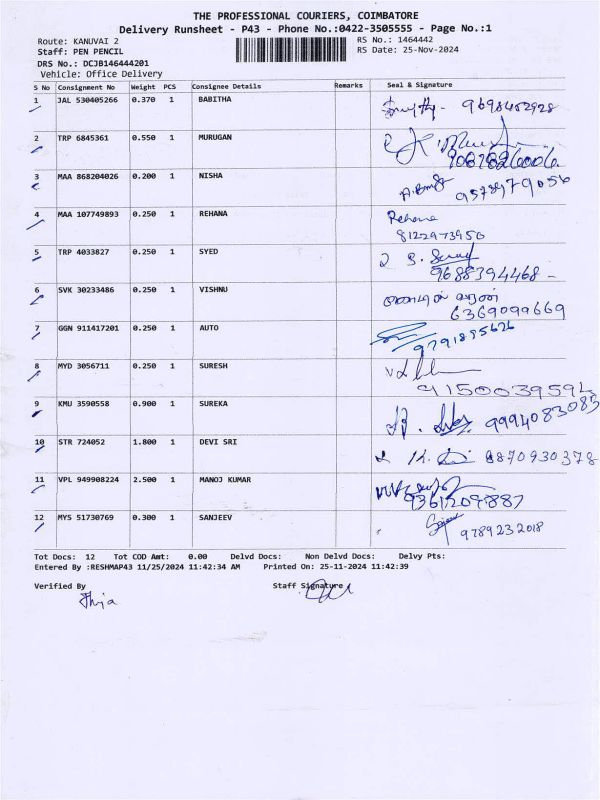 THE PROFESSIONAL COURIERS, COIMBATORE
Delivery Runsheet - P43 - Phone No.:0422-3505555 - Page No.:1
Route: KANUVAI 2 RS No.: 1464442
Staff: PEN PENCIL RS Date: 25-Nov-2024
DRS No.: DCJB146444201
Vehicle: Office Delivery
S No Consignment No Weight PCS Consignee Details Remarks Seal & Signature
1 JAL 530405266 0.370 1 BABITHA
2 TRP 6845361 0.550 1 MURUGAN
3 MAA 868204026 0.200 1 NISHA
9578979056
4 MAA 107749893 0.250 1 REHANA Rehana
8122973950
5 TRP 4033827 0.250 1 SYED
9688394468 -
6 SVK 30233486 0.250 1 VISHNU
6369099669
7 GGN 911417201 0.250 1 AUTO
9791895626
8 MYD 3056711 0.250 1 SURESH
9 KMU 3590558 0.900 1 SUREKA 9994083083
10 STR 724052 1.800 1 DEVI SRI 8870930378
11 VPL 949908224 2.500 1 MANOJ KUMAR
9361209887
12 MYS 51730769 0.300 1 SANJEEV
9789232018
Tot Docs: 12 Tot COD Amt: 0.00 Delvd Docs: Non Delvd Docs: Delvy Pts:
Entered By :RESHMAP43 11/25/2024 11:42:34 AM Printed On: 25-11-2024 11:42:39
Verified By Staff Signature